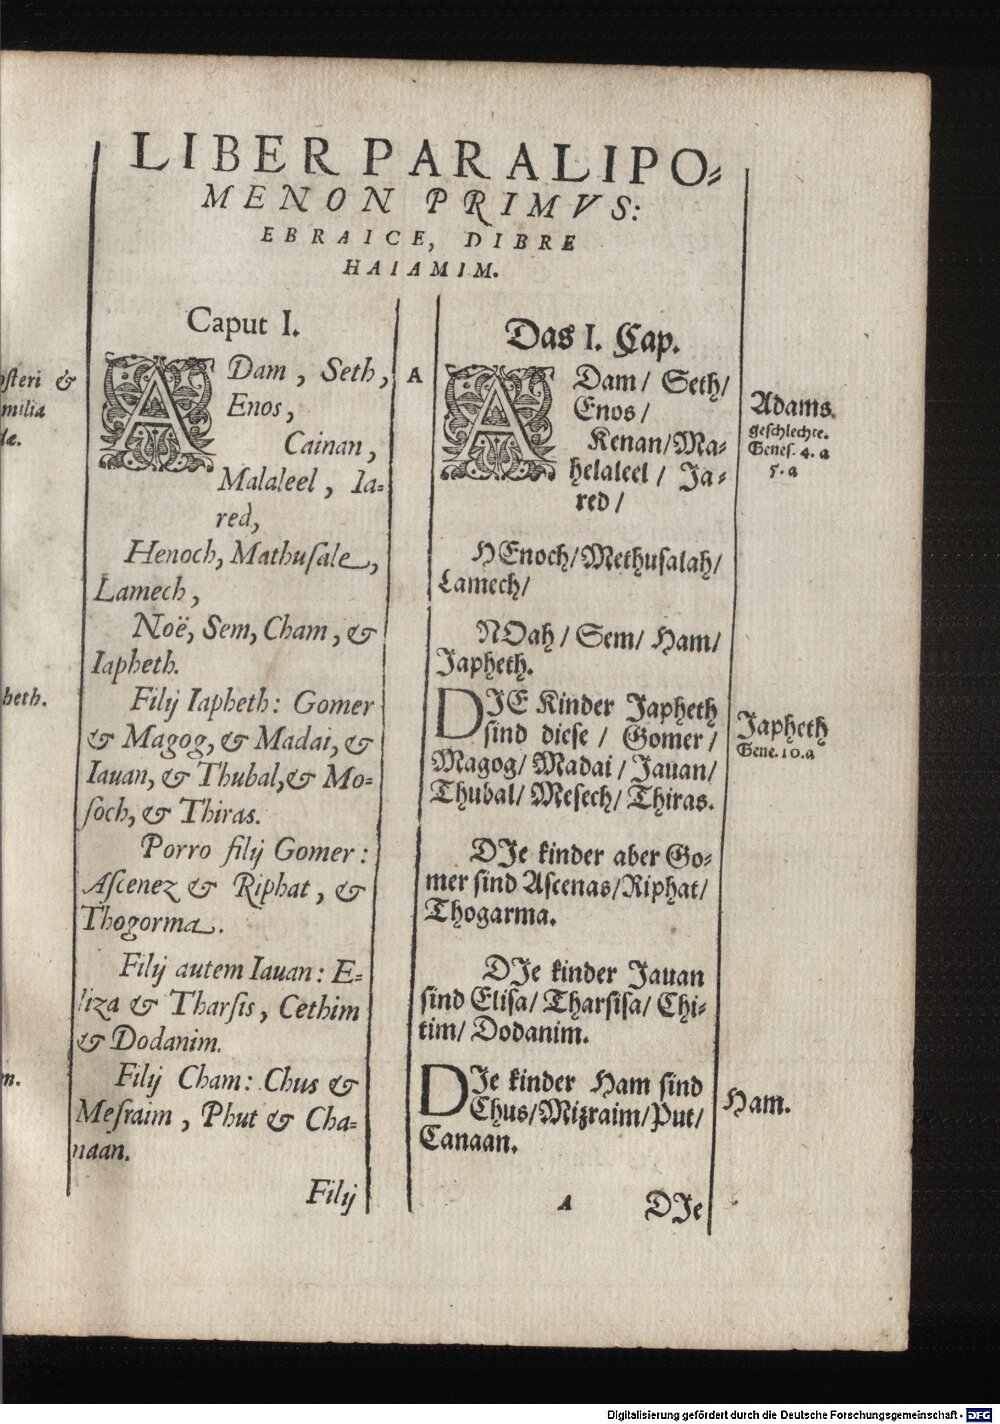 LIBER PARALIPO⸗
MENON PRIMVS:
EBRAICE, DIBRE
HAIAMIM.
Caput I.
ADam, Seth,
Enos,
Cainan,
Malaleel, Ia⸗
red,
Henoch, Mathuſale,
Lamech,
Noë, Sem, Cham, &
Iapheth.
Filij Iapheth: Gomer
& Magog, & Madai, &
Iauan, & Thubal, & Mo⸗
ſoch, & Thiras.
Porro filij Gomer:
Aſcenez & Riphat, &
Thogorma.
Filij autem Iauan: E⸗
liza & Tharſis, Cethim
& Dodanim.
Filij Cham: Chus &
Meſraim, Phut & Cha⸗
naan.
Filij
A
Das I. Cap.
ADam/ Seth/
Enos/
Kenan/Ma⸗
helaleel/ Ja⸗
red/
HEnoch/Methuſalah/
Lamech/
NOah/ Sem/ Ham/
Japheth.
DIE Kinder Japheth
ſind dieſe/ Gomer/
Magog/ Madai/ Jauan/
Thubal/ Meſech/ Thiras.
DIe kinder aber Go⸗
mer ſind Aſcenas/Riphat/
Thogarma.
DIe kinder Jauan
ſind Eliſa/ Tharſiſa/ Chi⸗
tim/ Dodanim.
DIe kinder Ham ſind
Chus/Mizraim/Put/
Canaan.
A DIe
Adams
geſchlechte.
Geneſ. 4. a
5. a
Japheth
Gene. 10. a
Ham.
oſteri &
milia
heth.
Digitalisierung gefördert durch die Deutsche Forschungsgemeinschaft - DFG